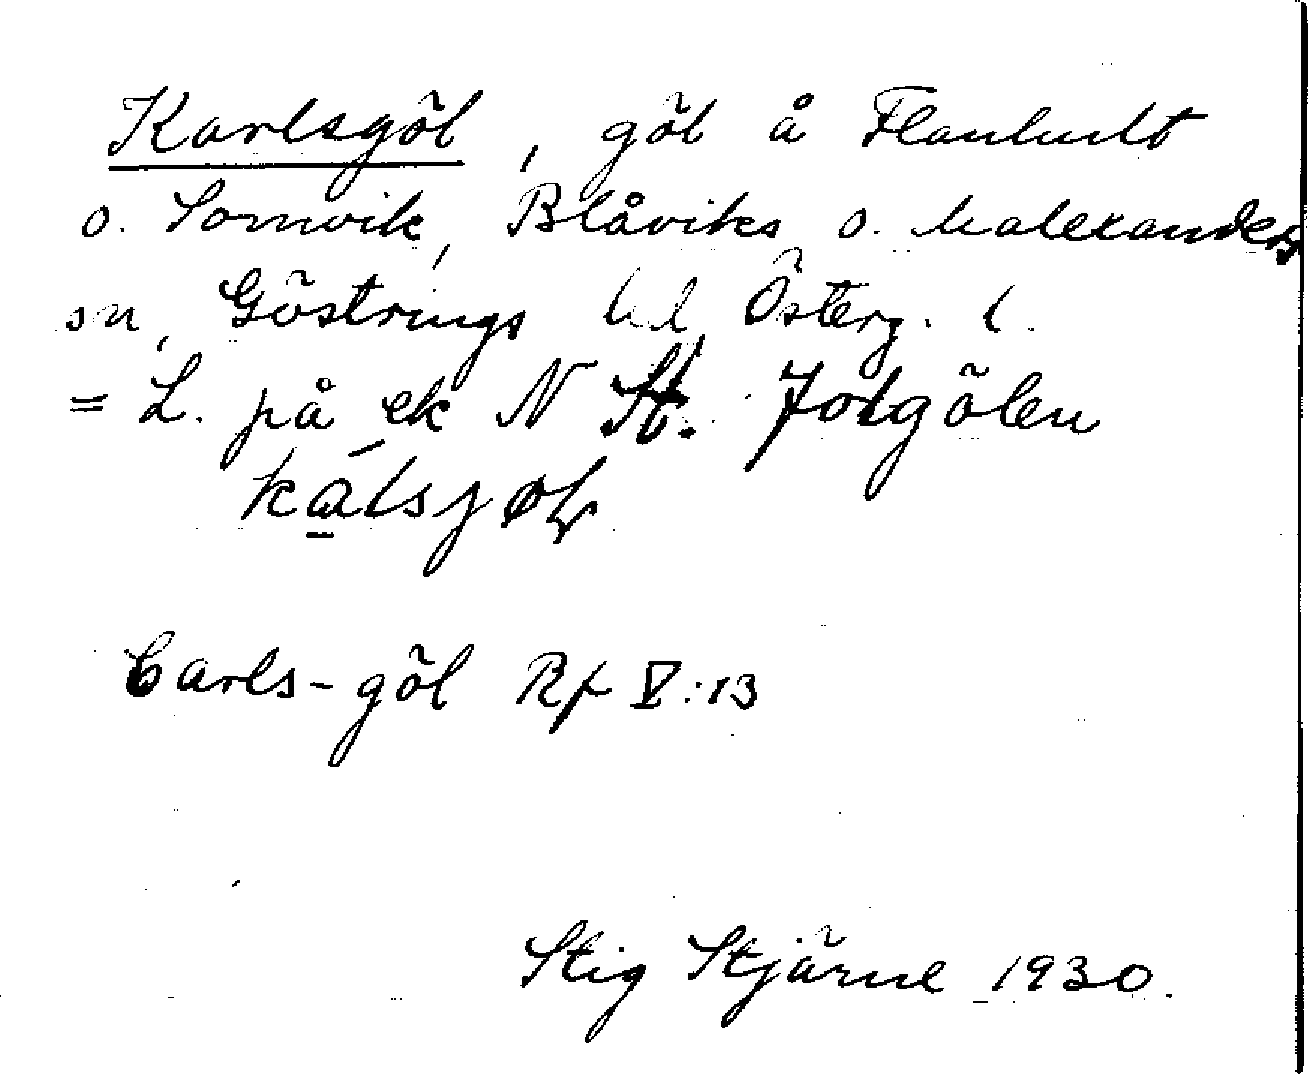 Karlsgöl, göl å Flanhult
o. Somvik, Blåviks o. Malexanders
sn, Göstrings hd, Österg. l.
= L. på ek N St. Jolgölen
kálsjøl

Carls-göl Rf V:13

Stig Stjärne 1930.